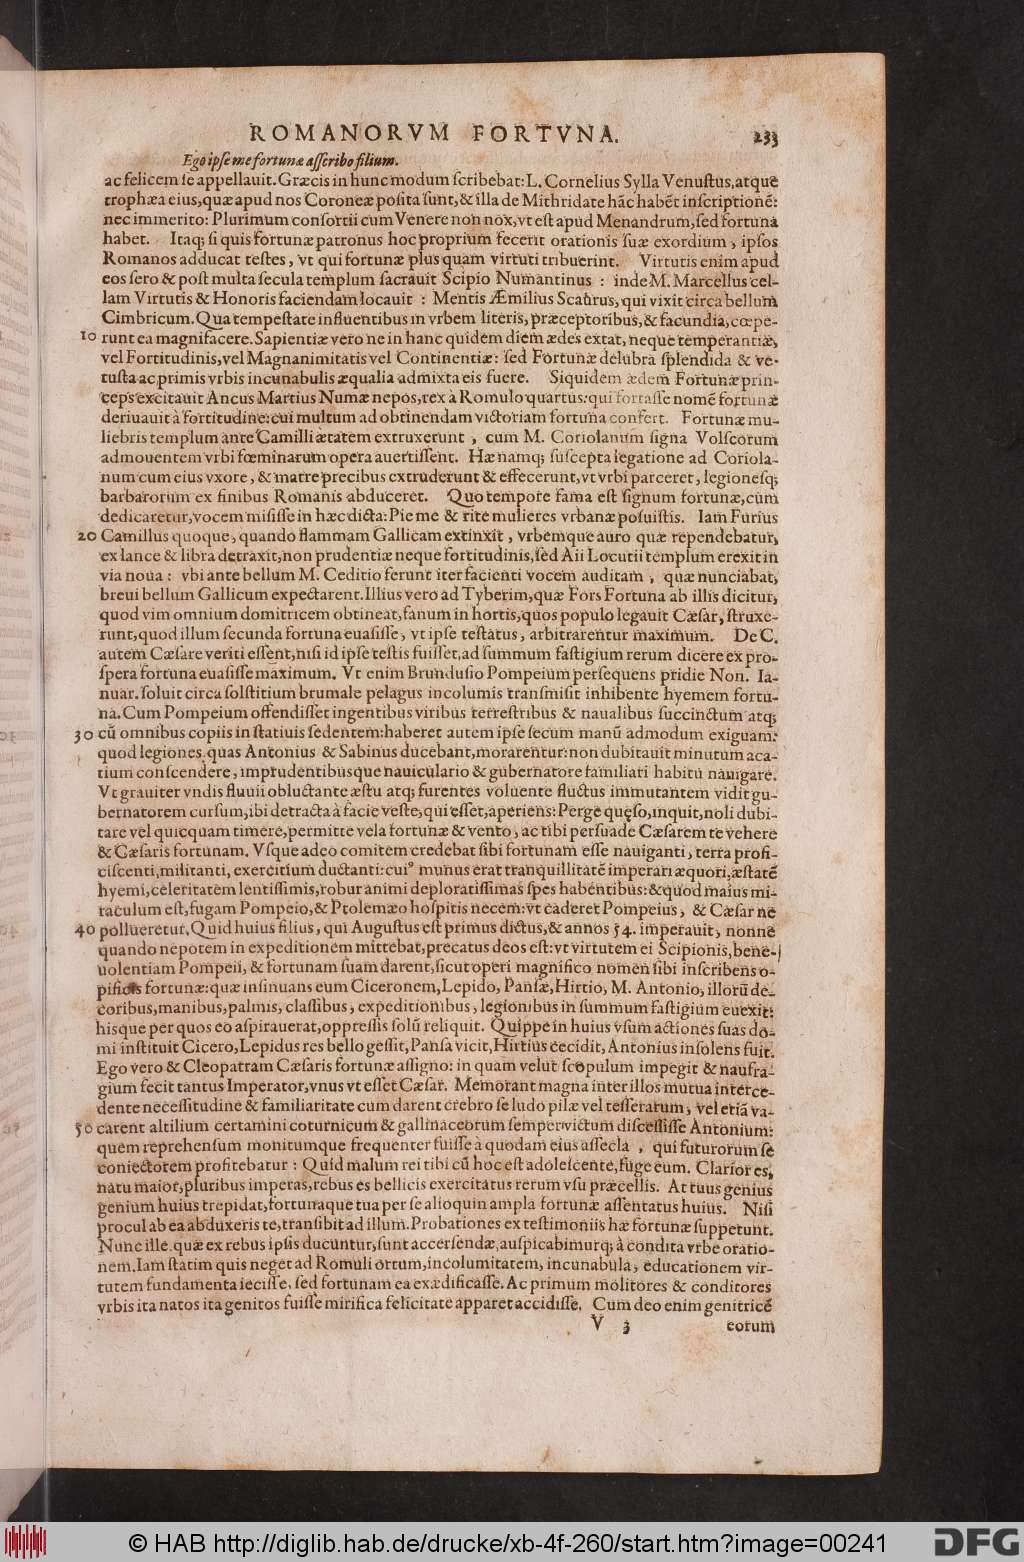 ROMANORVM FORTVNA. 233
Ego ipſe me fortunæ aſſcribo filium.
ac felicem ſe appellauit. Græcis in hunc modum ſcribebat: L. Cornelius Sylla Venuſtus, atque
trophæa eius, quæ apud nos Coroneæ poſita ſunt, & illa de Mithridate hãc habẽt inſcriptionẽ:
nec immerito: Plurimum conſortii cum Venere non nox, vt eſt apud Menandrum, ſed fortuna
habet. Itaq; ſi quis fortunæ patronus hoc proprium fecerit orationis ſuæ exordium, ipſos
Romanos adducat teſtes, vt qui fortunæ plus quam virtuti tribuerint. Virtutis enim apud
eos ſero & poſt multa ſecula templum ſacrauit Scipio Numantinus : inde M. Marcellus cel-
lam Virtutis & Honoris faciendam locauit : Mentis Æmilius Scaurus, qui vixit circa bellum
Cimbricum. Qua tempeſtate influentibus in vrbem literis, præceptoribus, & facundia, cœpe-
10 runt ea magnifacere. Sapientiæ vero ne in hanc quidem diem ædes extat, neque temperantiæ,
vel Fortitudinis, vel Magnanimitatis vel Continentiæ: ſed Fortunæ delubra ſplendida & ve-
tuſta ac primis vrbis incunabulis æqualia admixta eis fuere. Siquidem ædem Fortunæ prin-
ceps excitauit Ancus Martius Numæ nepos, rex à Romulo quartus: qui fortaſſe nomẽ fortunæ
deriuauit à fortitudine: cui multum ad obtinendam victoriam fortuna confert. Fortunæ mu-
liebris templum ante Camilli ætatem extruxerunt, cum M. Coriolanum ſigna Volſcorum
admouentem vrbi fœminarum opera auertiſſent. Hæ namq; ſuſcepta legatione ad Coriola-
num cum eius vxore, & matre precibus extruderunt & effecerunt, vt vrbi parceret, legionesq;
barbarorum ex finibus Romanis abduceret. Quo tempore fama eſt ſignum fortunæ, cùm
dedicaretur, vocem miſiſſe in hæc dicta: Pie me & rite mulieres vrbanæ poſuiſtis. Iam Furius
20 Camillus quoque, quando flammam Gallicam extinxit, vrbemque auro quæ rependebatur,
ex lance & libra detraxit, non prudentiæ neque fortitudinis, ſed Aii Locutii templum erexit in
via noua : vbi ante bellum M. Ceditio ferunt iter facienti vocem auditam, quæ nunciabat,
breui bellum Gallicum expectarent. Illius vero ad Tyberim, quæ Fors Fortuna ab illis dicitur,
quod vim omnium domitricem obtineat, fanum in hortis, quos populo legauit Cæſar, ſtruxe-
runt, quod illum ſecunda fortuna euaſiſſe, vt ipſe teſtatus, arbitrarentur maximum. De C.
autem Cæſare veriti eſſent, niſi id ipſe teſtis fuiſſet, ad ſummum faſtigium rerum dicere ex pro-
ſpera fortuna euaſiſſe maximum. Vt enim Brunduſio Pompeium perſequens pridie Non. Ia-
nuar. ſoluit circa ſolſtitium brumale pelagus incolumis tranſmiſit inhibente hyemem fortu-
na. Cum Pompeium offendiſſet ingentibus viribus terreſtribus & naualibus ſuccinctum atq;
30 cũ omnibus copiis in ſtatiuis ſedentem: haberet autem ipſe ſecum manũ admodum exiguam:
quod legiones, quas Antonius & Sabinus ducebant, morarentur: non dubitauit minutum aca-
tium conſcendere, imprudentibusque nauiculario & gubernatore familiari habitu nauigare.
Vt grauiter vndis fluuii obluctante æſtu atq; furentes voluente fluctus immutantem vidit gu-
bernatorem curſum, ibi detracta à facie veſte, qui eſſet, aperiens: Perge quęſo, inquit, noli dubi-
tare vel quicquam timere, permitte vela fortunæ & vento, ac tibi perſuade Cæſarem te vehere
& Cæſaris fortunam. Vſque adeo comitem credebat ſibi fortunam eſſe nauiganti, terra profi-
ciſcenti, militanti, exercitium ductanti: cuiꝰ munus erat tranquillitatẽ imperari æquori, æſtatẽ
hyemi, celeritatem lentiſſimis, robur animi deploratiſſimas ſpes habentibus: & quod maius mi-
raculum eſt, fugam Pompeio, & Ptolemæo hoſpitis necem: vt caderet Pompeius, & Cæſar ne
40 pollueretur. Quid huius filius, qui Auguſtus eſt primus dictus, & annos 54. imperauit, nonne
quando nepotem in expeditionem mittebat, precatus deos eſt: vt virtutem ei Scipionis, bene-
uolentiam Pompeii, & fortunam ſuam darent, ſicut operi magnifico nomen ſibi inſcribens o-
pificis fortunæ: quæ inſinuans eum Ciceronem, Lepido, Panſæ, Hirtio, M. Antonio, illorũ de-
coribus, manibus, palmis, claſſibus, expeditionibus, legionibus in ſummum faſtigium euexit:
hisque per quos eo aſpirauerat, oppreſſis ſolũ reliquit. Quippe in huius vſum actiones ſuas do-
mi inſtituit Cicero, Lepidus res bello geſſit, Panſa vicit, Hirtius cecidit, Antonius inſolens fuit.
Ego vero & Cleopatram Cæſaris fortunæ aſſigno: in quam velut ſcopulum impegit & naufra-
gium fecit tantus Imperator, vnus vt eſſet Cæſar. Memorant magna inter illos mutua interce-
dente neceſſitudine & familiaritate cum darent crebro ſe ludo pilæ vel teſſerarum, vel etiã va-
50 carent altilium certamini coturnicum & gallinaceorum ſemper victum diſceſſiſſe Antonium:
quem reprehenſum monitumque frequenter fuiſſe à quodam eius aſſecla, qui futurorum ſe
coniectorem profitebatur : Quid malum rei tibi cũ hoc eſt adoleſcente, fuge eum. Clarior es,
natu maior, pluribus imperas, rebus es bellicis exercitatus rerum vſu præcellis. At tuus genius
genium huius trepidat, fortunaque tua per ſe alioquin ampla fortunæ aſſentatus huius. Niſi
procul ab ea abduxeris te, tranſibit ad illum. Probationes ex teſtimoniis hæ fortunæ ſuppetunt.
Nunc ille, quæ ex rebus ipſis ducuntur, ſunt accerſendæ, auſpicabimurq; à condita vrbe oratio-
nem. Iam ſtatim quis neget ad Romuli ortum, incolumitatem, incunabula, educationem vir-
tutem fundamenta ieciſſe, ſed fortunam ea exædificaſſe. Ac primum molitores & conditores
vrbis ita natos ita genitos fuiſſe mirifica felicitate apparet accidiſſe. Cum deo enim genitricẽ
V 3 eorum
© HAB http://diglib.hab.de/drucke/xb-4f-260/start.htm?image=00241
DFG